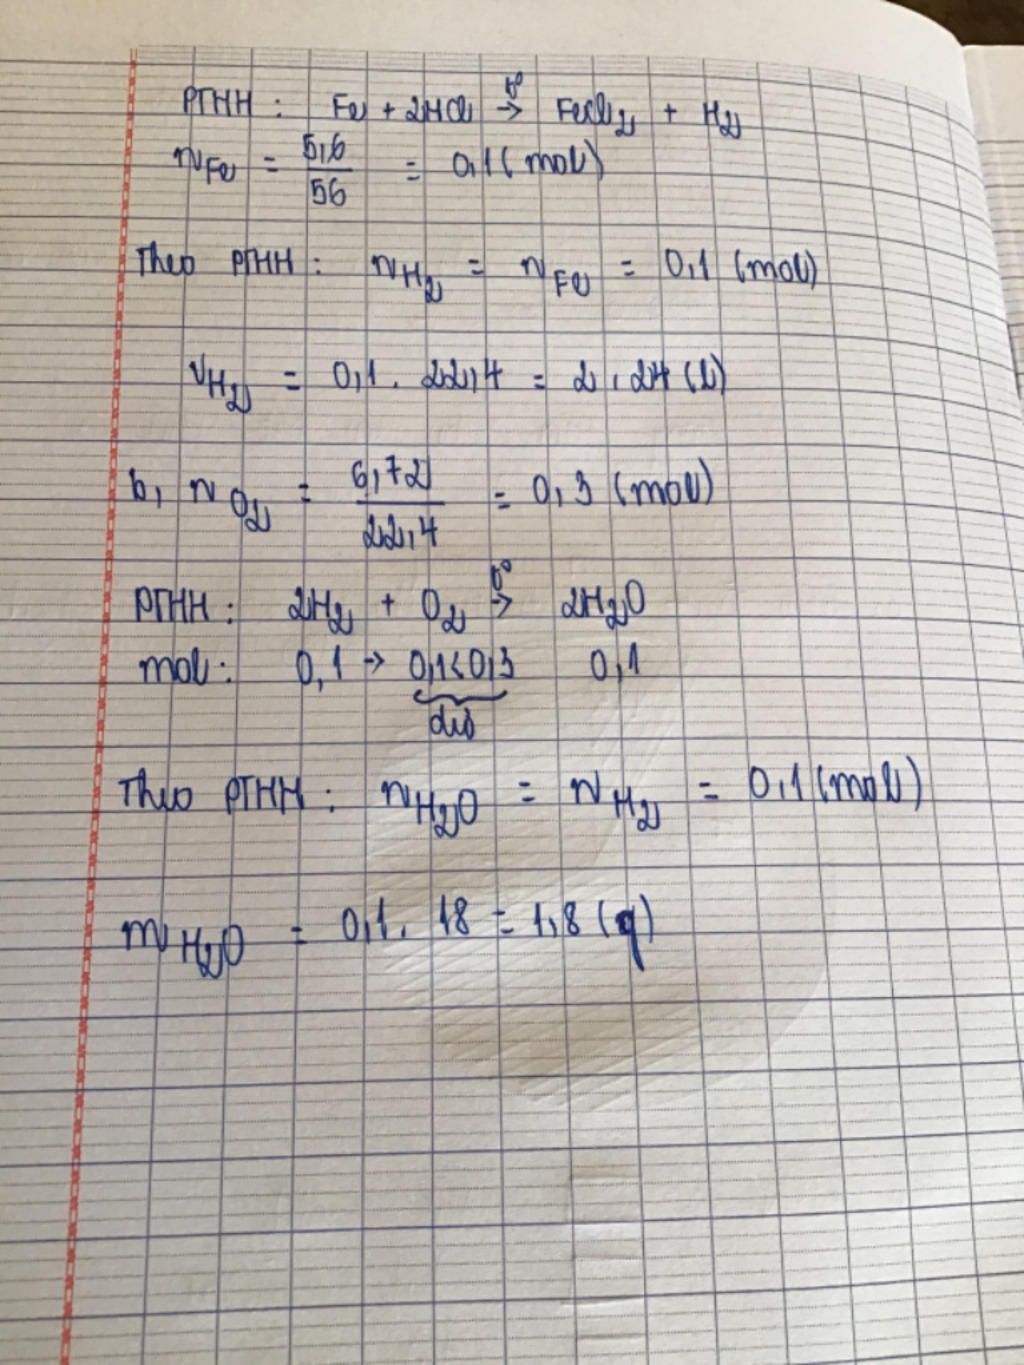 PTHH : Fe + 2HCl t° → FeCl₂ + H₂
nFe = 5,6/56 = 0,1 (mol)
Theo PTHH : nH₂ = nFe = 0,1 (mol)
VH₂ = 0,1 . 22,4 = 2,24 (l)
b, nO₂ = 6,72/22,4 = 0,3 (mol)
PTHH : 2H₂ + O₂ t° → 2H₂O
mol : 0,1 → 0,1<0,3 0,1
dư
Theo PTHH : nH₂O = nH₂ = 0,1 (mol)
mH₂O = 0,1 . 18 = 1,8 (g)